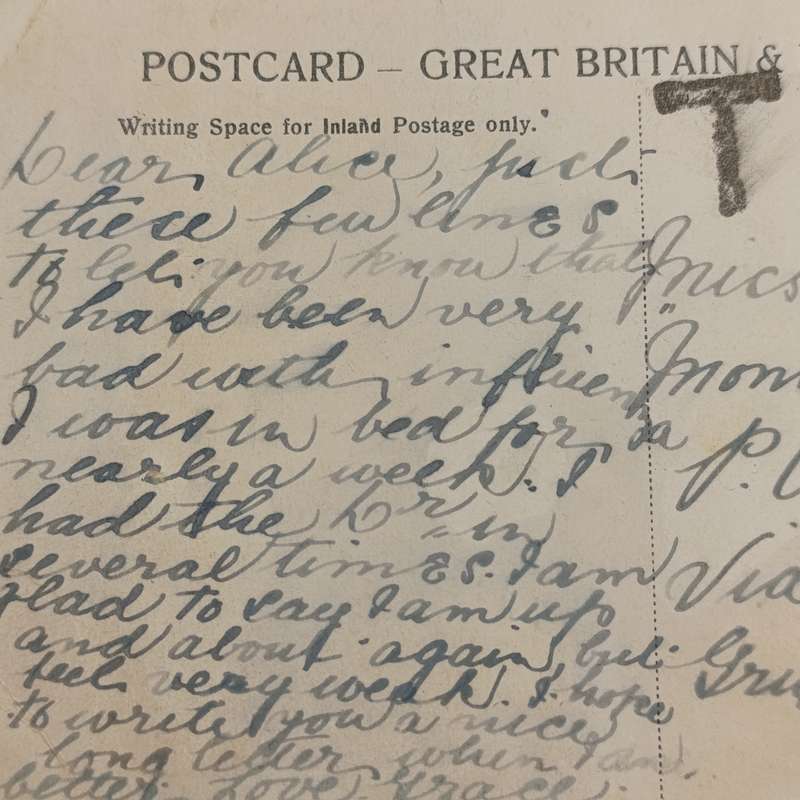 POSTCARD — GREAT BRITAIN &
Writing Space for Inland Postage only.
T
Dear Alice, just
these few lines
to let you know that
I have been very
bad with influenza
I was in bed for
nearly a week. I
had the Dr in
several times. I am
glad to say I am up
and about again, but
feel very weak. I hope
to write you a nice
long letter when I am
better. Love Grace.
Mrs
Mon
P.
Via
Gru